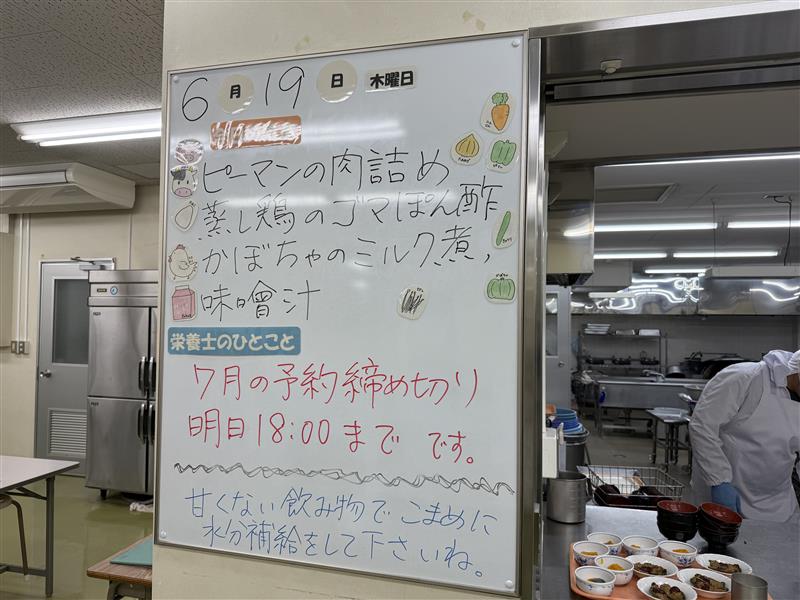 6月19日 木曜日
ピーマンの肉詰め
蒸し鶏のゴマぽん酢
かぼちゃのミルク煮,
味噌汁
栄養士のひとこと
7月の予約締め切り
明日18:00までです。
甘くない飲み物でこまめに
水分補給をして下さいね。